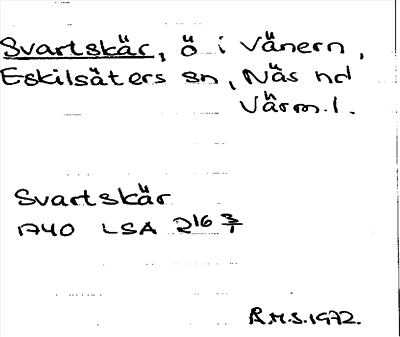 Svartskär, ö i Vänern,
Eskilsäters sn, Näs hd
Värml.
Svartskär
1740 LSA R16 3/1
R.M.S. 1972.